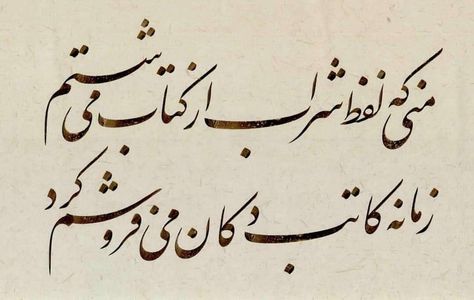 منی که لفظ شراب از کتاب می‌شستم
زمانه کاتب دکان می‌فروشم کرد